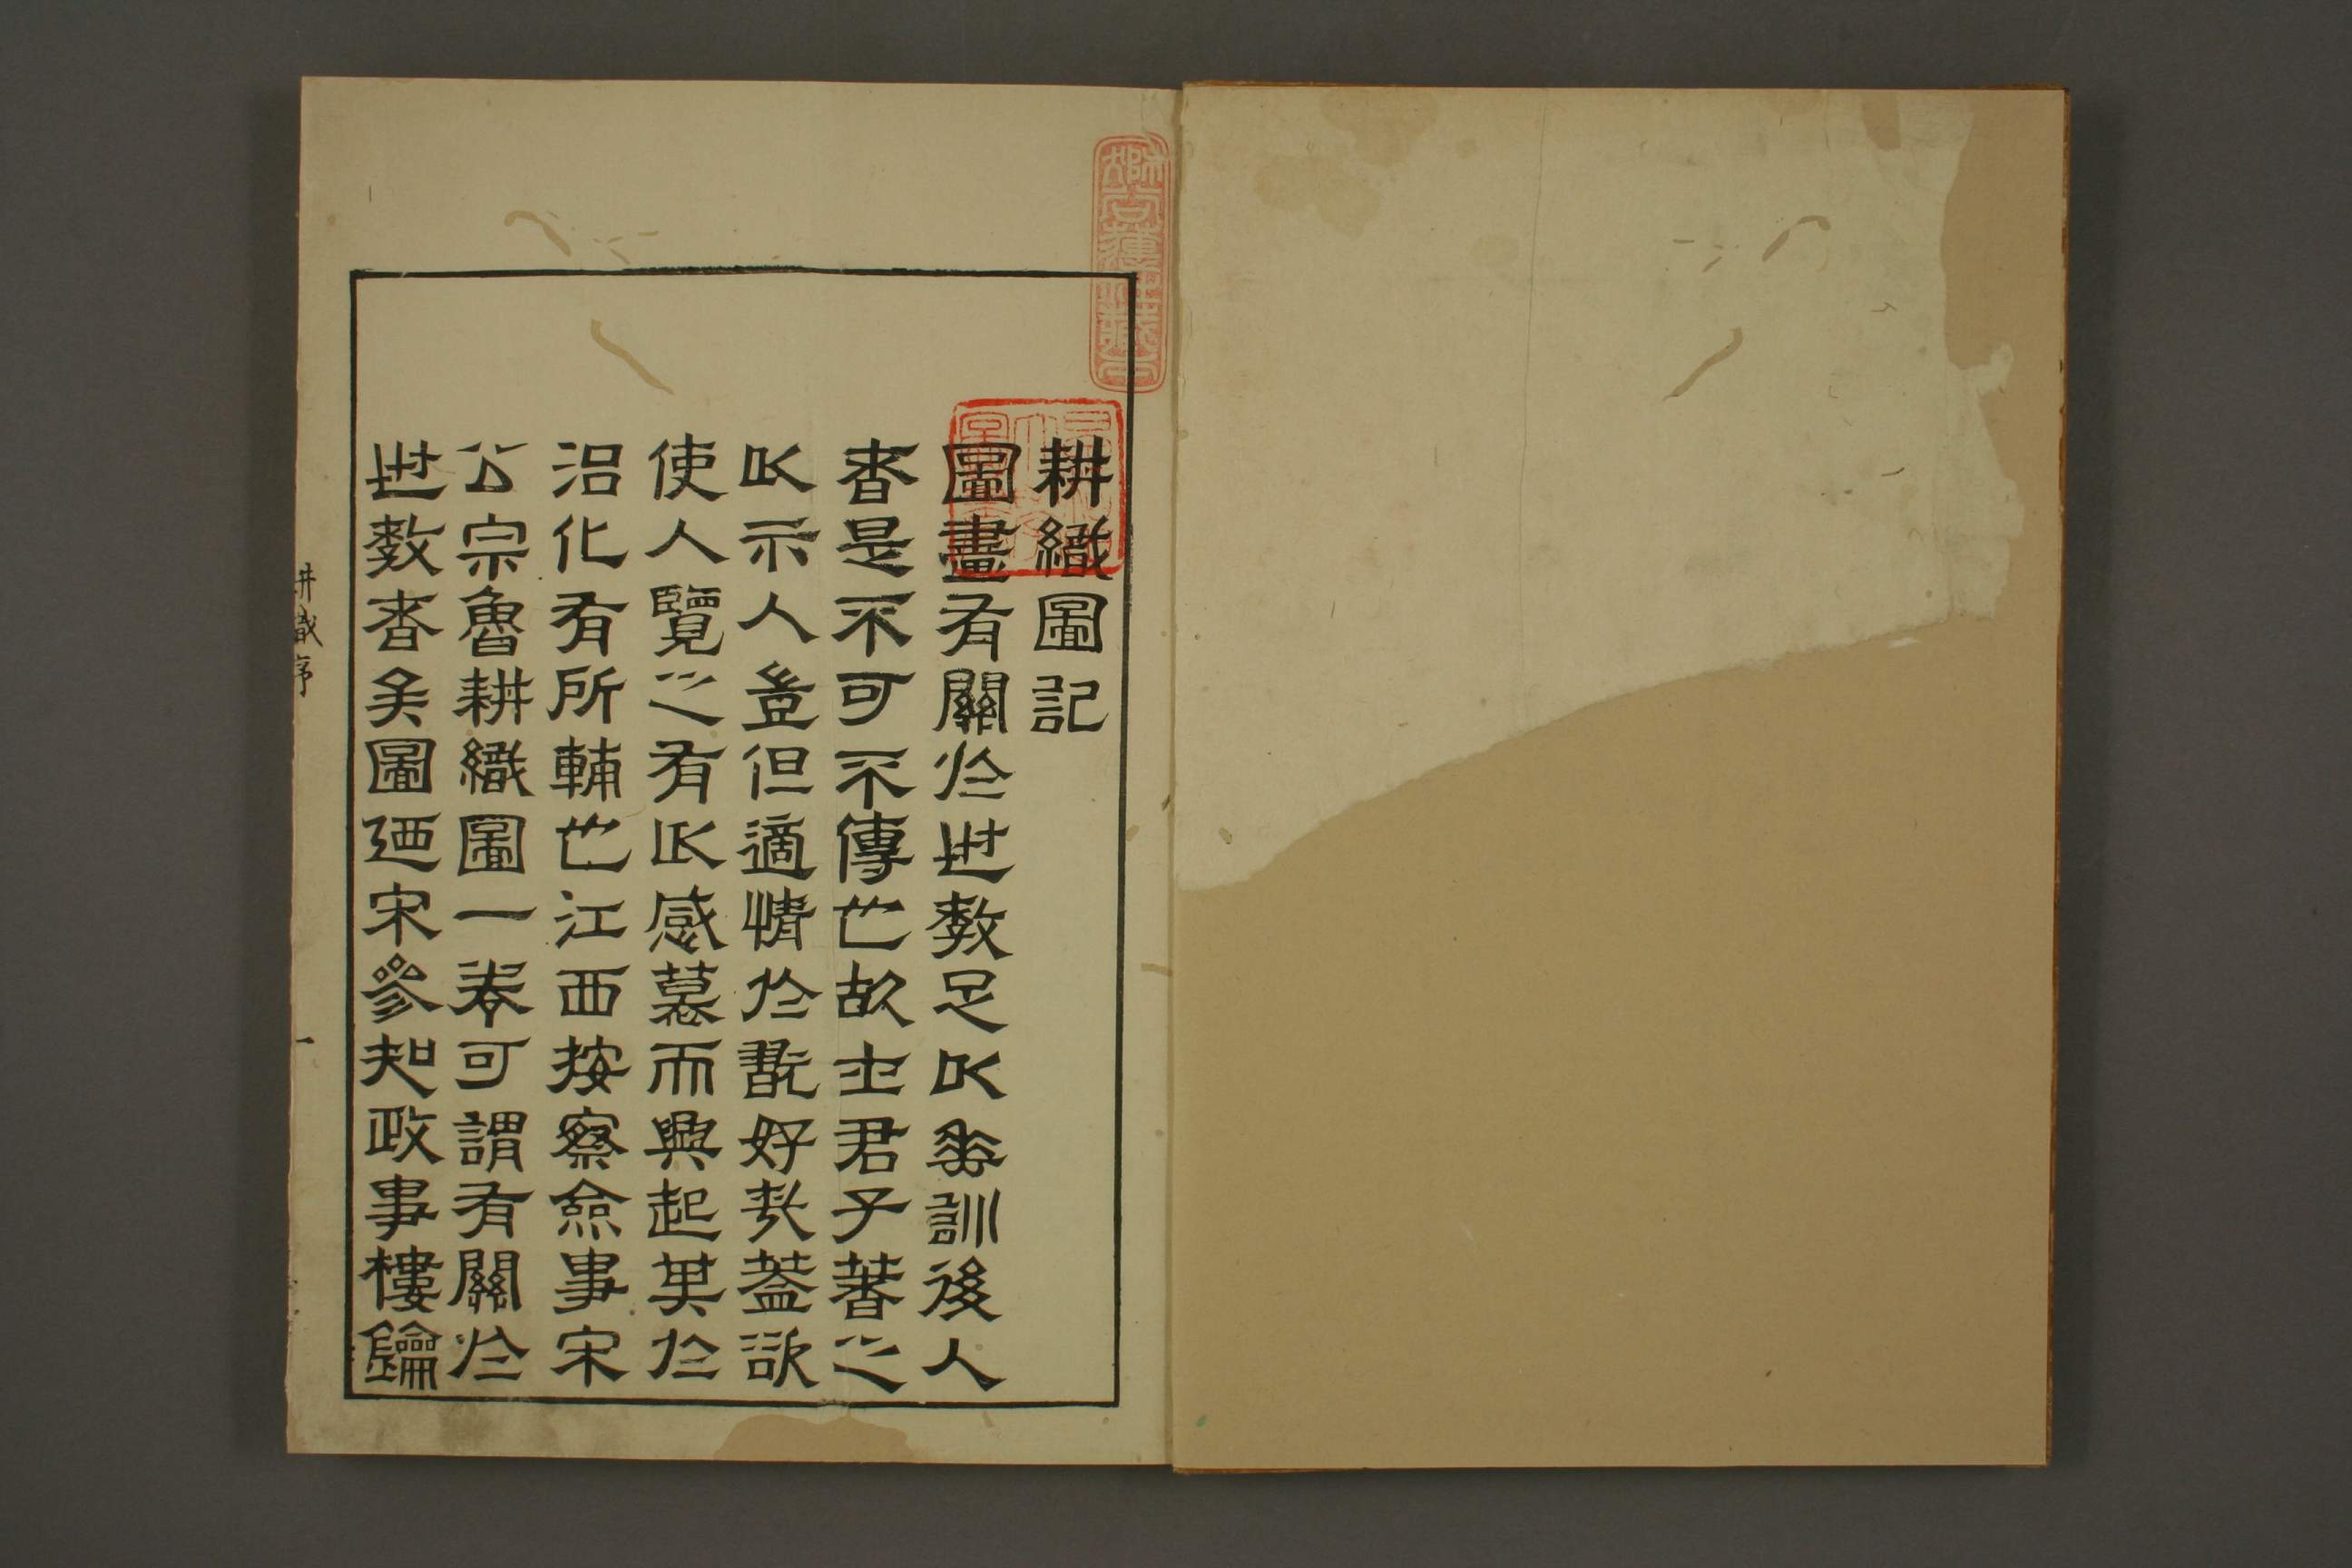 耕織圖記
圖畫有關於世教足以垂訓後人
者是不可不傳也故士君子著之
以示人豈但適情於翫好哉蓋欲
使人覽之有以感慕而興起其於
治化有所輔也江西按察僉事宋
公宗魯耕織圖一卷可謂有關於
世教者矣圖迺宋參知政事樓鑰
耕織序
一